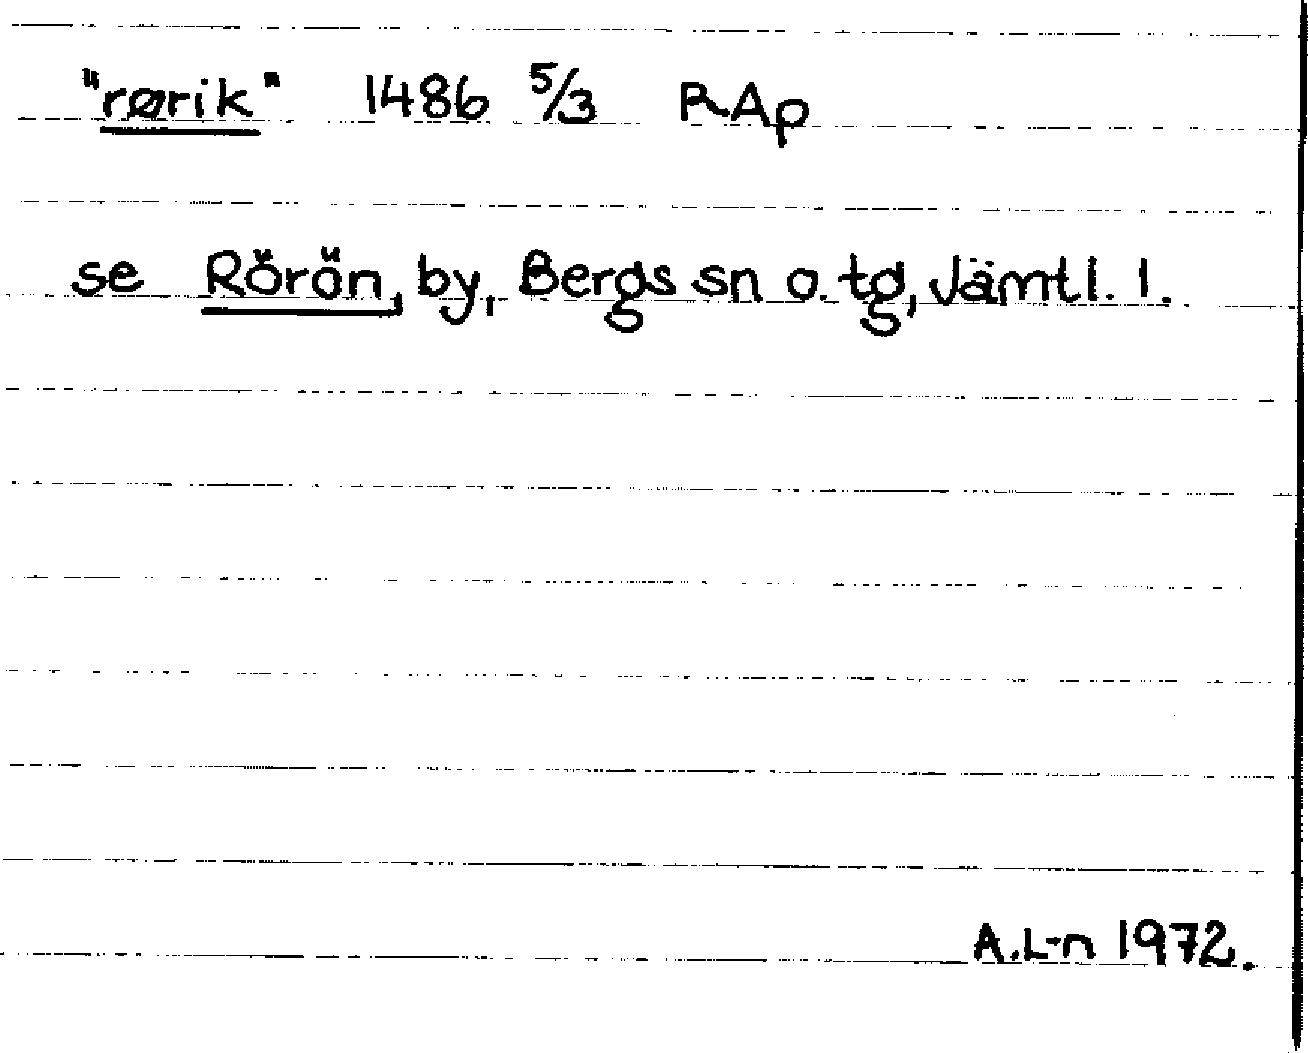 "rørik" 1486 5/3 RAp
se Rörön, by, Bergs sn o. tg, Jämtl. l.
A.L-n 1972.